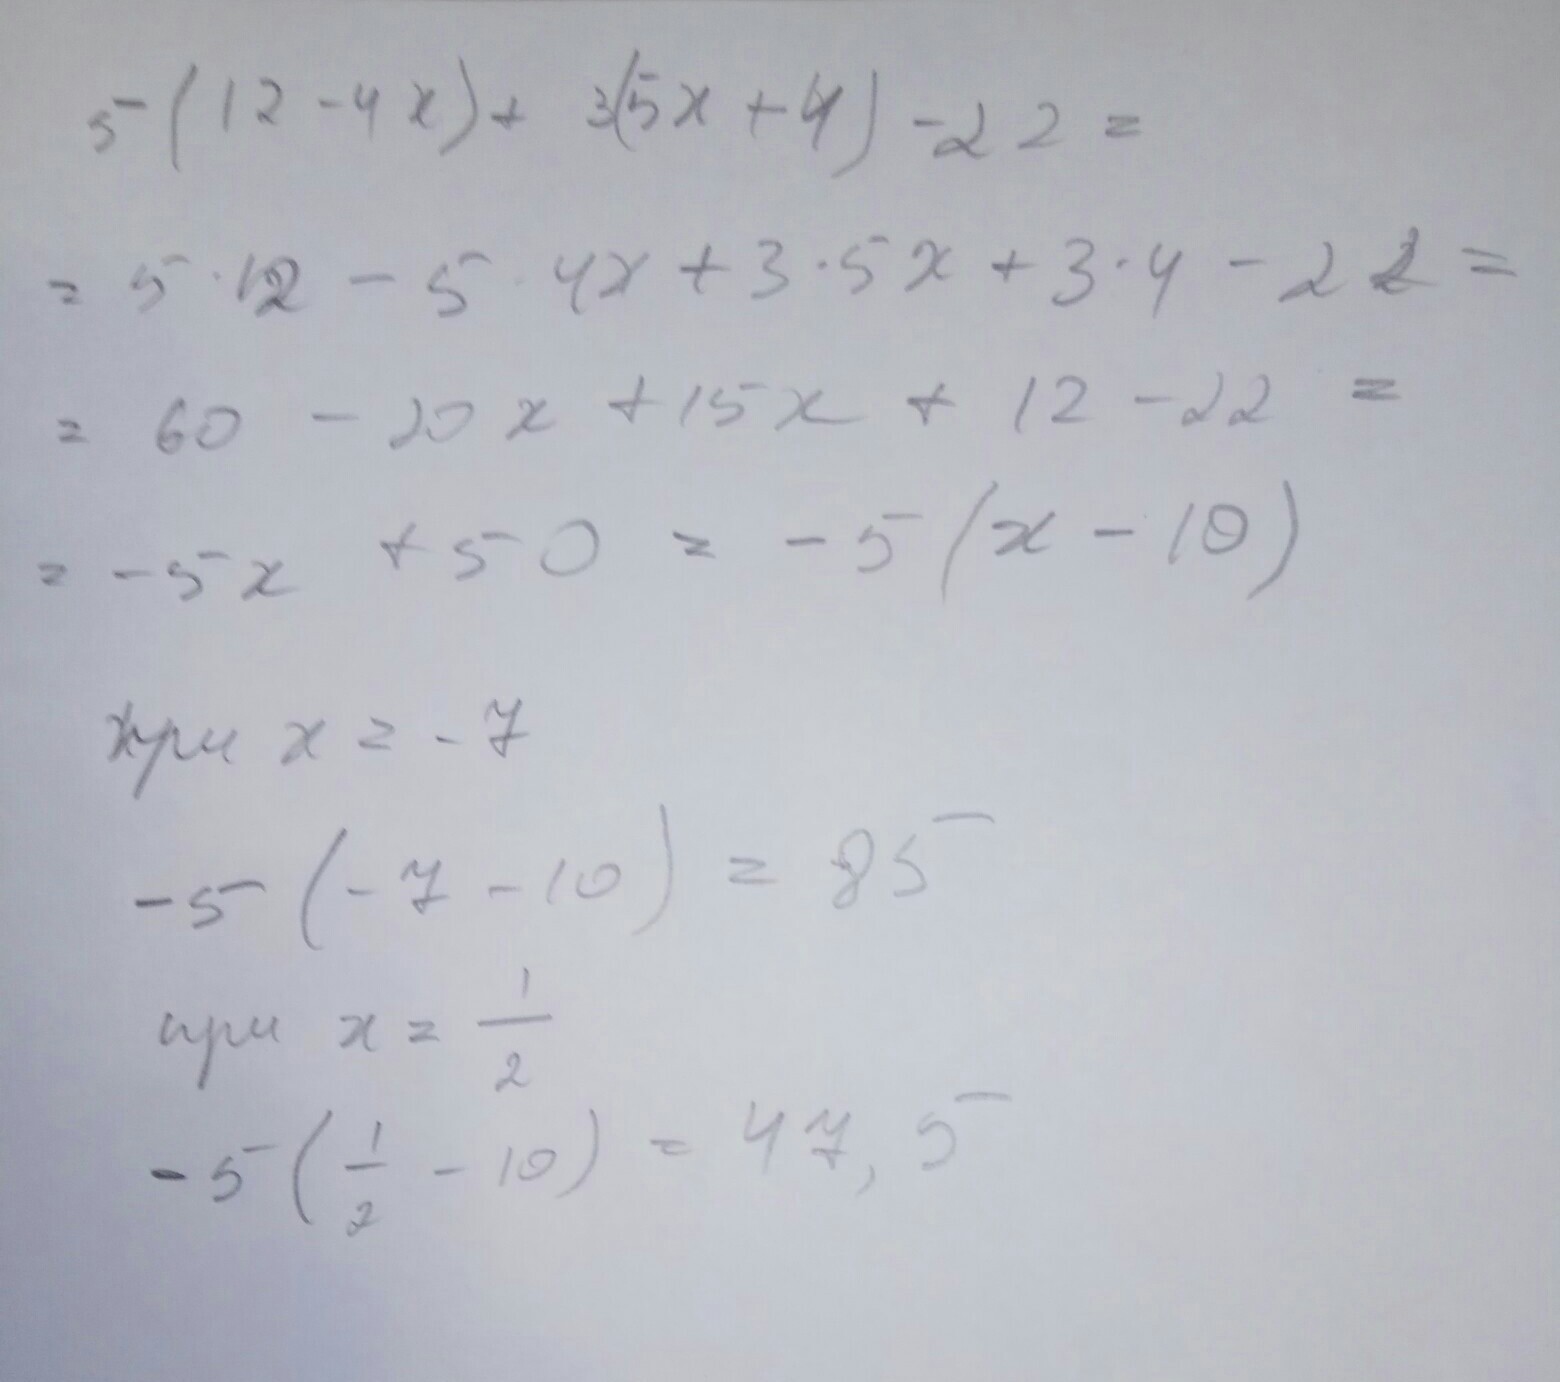 5(12-4x)+ 3(5x+4)-22=
= 5·12 - 5·4x+3·5x+3·4-22=
= 60 - 20x+15x+12-22=
= -5x+50 = -5(x-10)
при x=-7
-5(-7-10)=85
при x=1/2
-5(1/2-10)=47,5